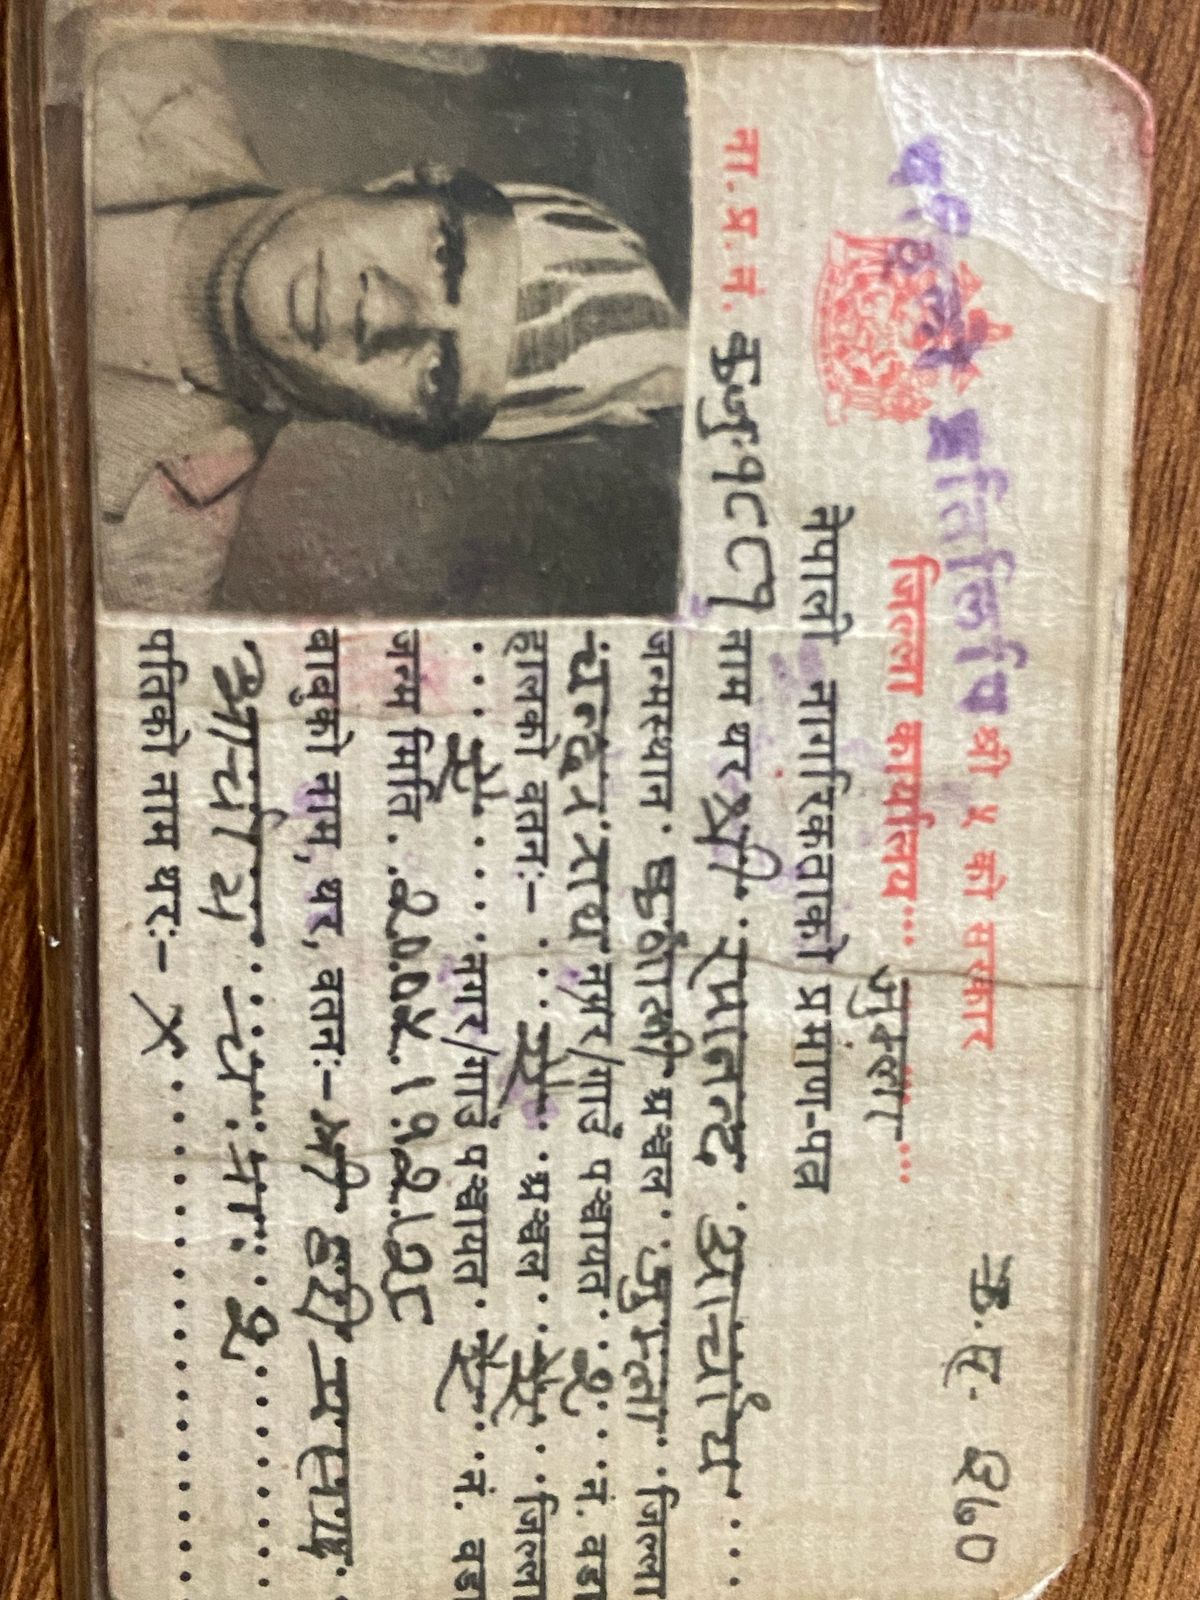 क.ए. ६७०
श्री ५ को सरकार
जिल्ला कार्यालय जुम्ला
नेपाली नागरिकताको प्रमाण-पत्र
ना. प्र. नं. १८८१ नाम थर श्री रमानन्द आचार्य
जन्मस्थान कर्णाली अञ्चल जुम्ला जिल्ला
चन्दननाथ नगर/गाउं पञ्चायत २ नं. वडा
हालको वतनः- ऐ अञ्चल ऐ जिल्ला
ऐ नगर/गाउं पञ्चायत ऐ नं. वडा
जन्म मिति २००५।१२।२८
बाबुको नाम, थर, वतनः- श्री हरी प्रसाद
आचार्य च. न. २
पतिको नाम थरः- ×